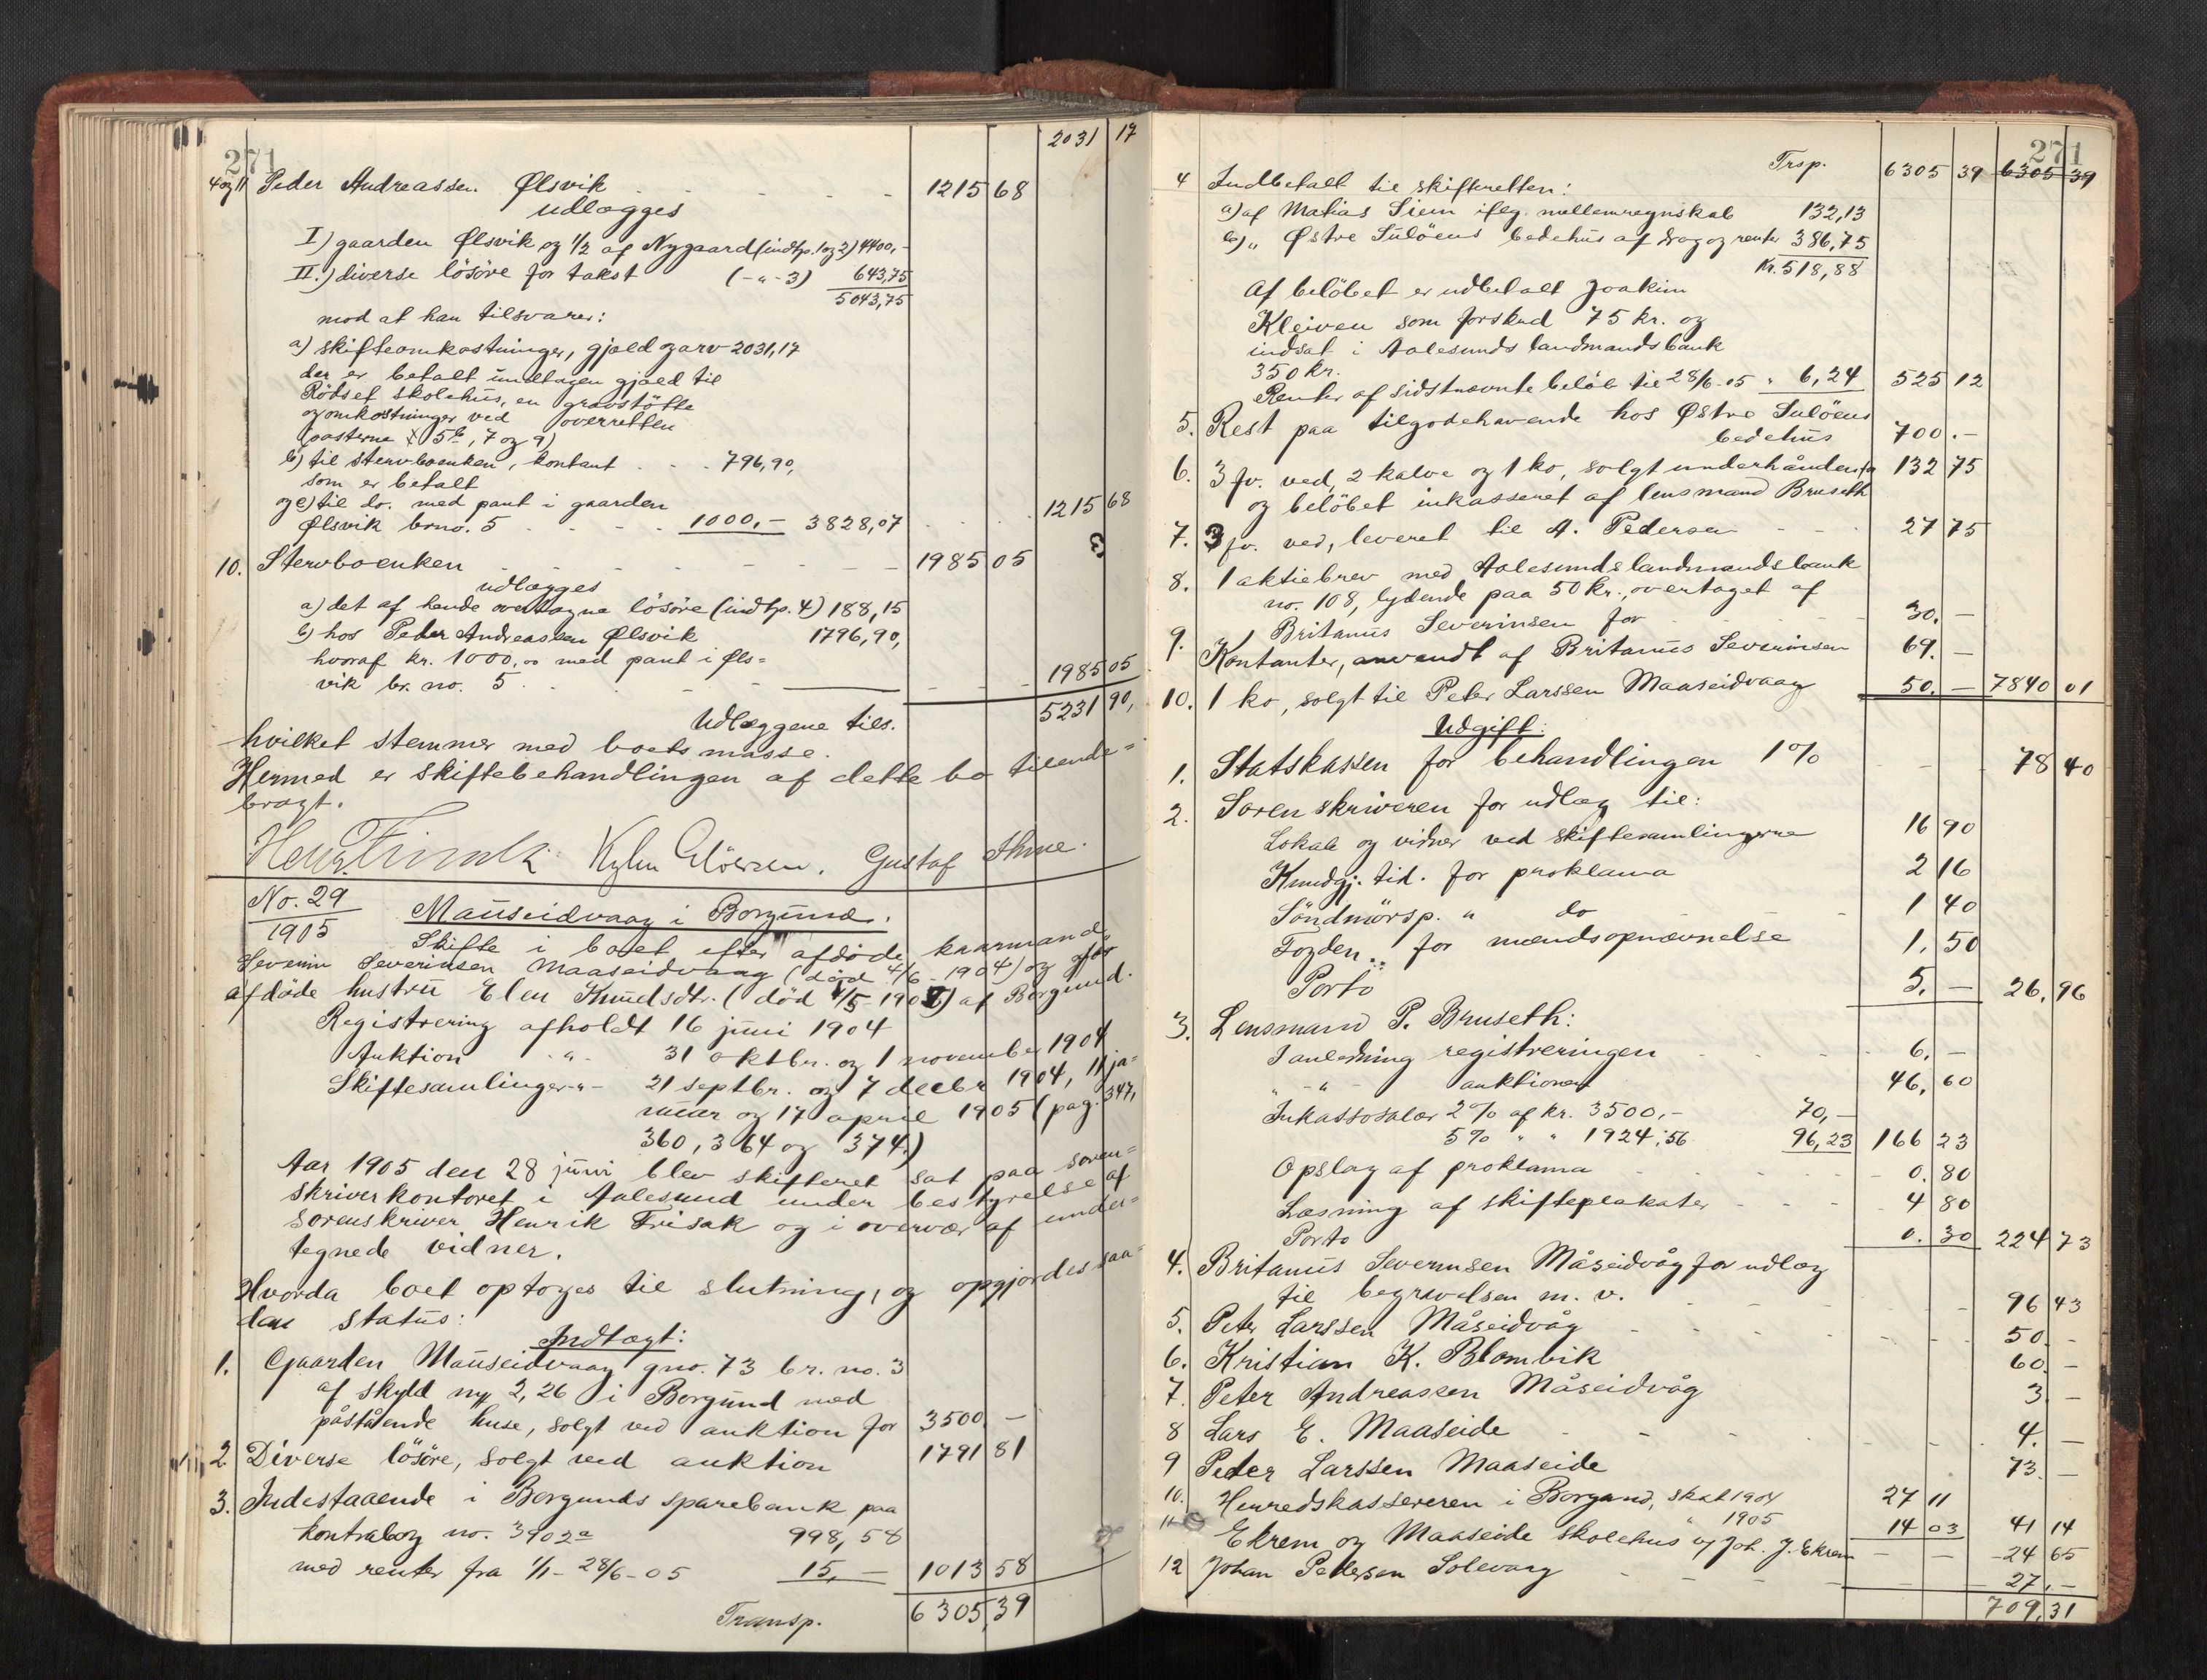 2031 17
271
4og11 Peder Andreassen Ølsvik 1215 68
udlægges
I) gaarden Ølsvik og 1/2 af Nygaard (indtp. 1og2) 4400,-
II.) diverse lösöre for takst (-"- 3) 643,75
5043,75
mod at han tilsvarer:
a) skifteomkostninger, gjæld og arv 2031,17
der er betalt undtagen gjæld til
Rödset skolehus, en gravstötte
og omkostninger ved overretten
(posterne 5b, 7 og 9)
b) til stervboenken, kontant 796,90,
som er betalt
og c) til do. med pant i gaarden
Ølsvik brno. 5 1000,- 3828,07 1215 68
10. Stervboenken 1985 05
udlægges
a) det af hende overtagne lösöre (indtp. 4) 188,15
b) hos Peder Andreassen Ølsvik 1796,90,
hvoraf kr. 1000,00 med pant i Øls=
vik br. no. 5 1985 05
Udlæggene tils. 5231 90,
hvilket stemmer med boets masse.
Hermed er skiftebehandlingen af dette bo tilende=
bragt.
Henr. Frisak Gustaf
No. 29
1905
Mauseidvaag i Borgund.
Skifte i boet efter afdöde kaarmand
Severin Severinsen Maaseidvaag (död 4/6 - 1904) og för
afdöde hustru Elen Knudsdtr. (död af Borgund.
Registrering afholdt 16 juni 1904
Auktion -"- 31 oktbr. og 1 november 1904
Skiftesamlinger -"- 21 septbr. og 7 decbr 1904, 11 ja=
nuar og 17 april 1905 (pag. 347,
360, 364 og 374.)
Aar 1905 den 28 juni blev skifteret sat paa soren=
skriverkontoret i Aalesund under bestyrelse af
sorenskriver Henrik Frisak og i overvær af under=
tegnede vidner.
Hvorda boet optoges til slutning, og opgjordes saa=
dan status:
Indtægt:
1. Gaarden Mauseidvaag gno. 73 br. no. 3
af skyld ny 2,26 i Borgund med
påstående huse, solgt ved auktion for 3500. -
2 Diverse lösöre, solgt ved auktion 1791 81
3. Indestaaende i Borgunds sparebank paa
kontrabog no. 3902a 998,58
med renter fra 1/1 - 28/6 - 05 15,- 1013 58
Transp. 6305,39
271
Trsp. 6305 39 6305 39
4 Indbetalt til skifteretten:
a) af Matias Siem ifølg. mellemregnskab 132,13
b) " Østre Sulöens bedehus afdrag og renter 386,75
Kr. 518,88
Af belöbet er udbetalt Joakim
Kleiven som forskud 75 kr. og
indsat i Aalesunds landmandsbank
350 kr.
Renter af sidstnævnte belöb til 28/6-05 " 6,24 525 12
5. Rest paa tilgodehavende hos Østre Sulöens
bedehus 700. -
6. 3 fv. ved, 2 kalve og 1 ko, solgt underhånden 132 75
og belöbet inkasseret af lensmand Bruseth
7. 3 fv. ved, leveret til A. Pedersen 27 75
8. 1 aktiebrev med Aalesunds landmandsbank
no. 108, lydende paa 50 kr., overtaget af
Britanus Severinsen for 30. -
9. Kontanter, anvendt af Britanus Severinsen 69. -
10. 1 ko, solgt til Peter Larssen Maaseidvaag 50. - 7840 01
Udgift:
1. Statskassen for behandlingen 1% 78 40
2. Sorenskriveren for udlæg til:
Lokale og vidner ved skiftesamlingerne 16 90
Kundgj. tid. for proklama 2 16
Söndmörsp. " do 1 40
Fogden for mændsopnævnelse 1. 50
Porto 5. - 26. 96
3. Lensmand P. Bruseth:
I anledning registreringen 6. -
" -"- auktionen 46, 60
Inkassosalær 2% af kr. 3500,- 70,-
5% " " 1924,56 96,23 166 23
Opslag af proklama 0. 80
Læsning af skifteplakater 4 80
Porto 0. 30 224 73
4. Britanus Severinsen Måseidvåg for udlæg
til begravelsen m. v. 96 43
5. Peter Larssen Måseidvåg 50. -
6. Kristian K. Blomvik 60. -
7. Peter Andreassen Måseidvåg 3. -
8 Lars E. Maaseide 4. -
9 Peder Larssen Maaseide 73. -
10. Herredskassereren i Borgund, skat 1904 27 11
" 1905 14 03 41 14
11 Ekrem og Maaseide skolehus v/ Joh. J. Ekrem 24 65
12 Johan Pedersen Solevaag 27. -
709,31